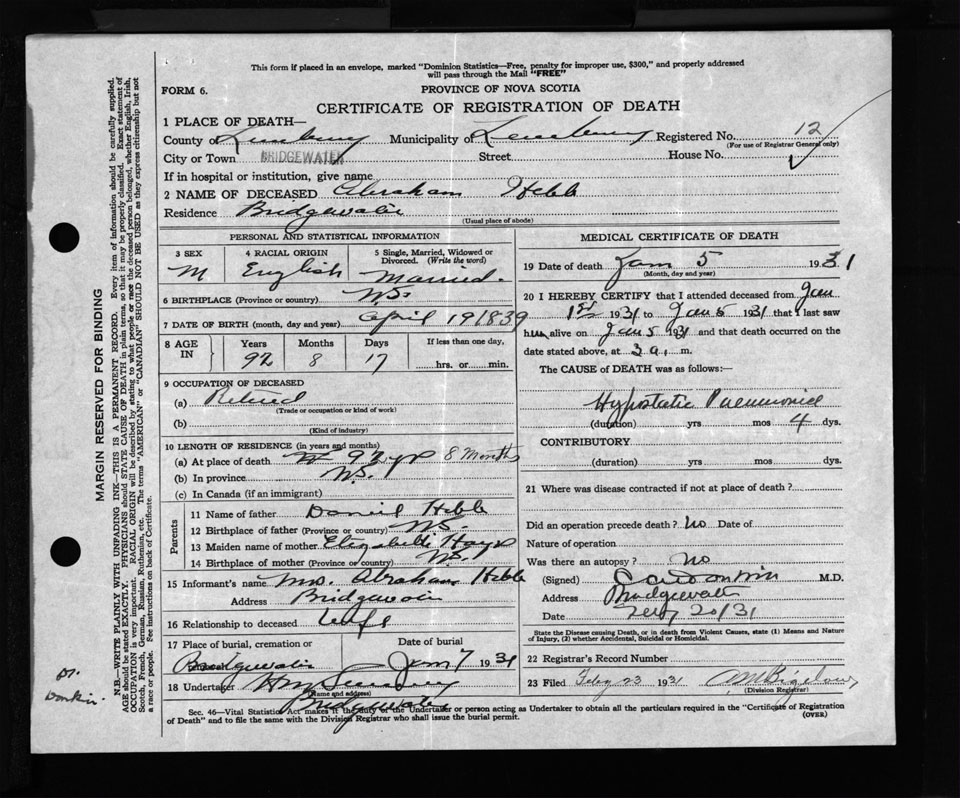 This form if placed in an envelope, marked "Dominion Statistics—Free, penalty for improper use, $300," and properly addressed
will pass through the Mail "FREE"
FORM 6.
PROVINCE OF NOVA SCOTIA
CERTIFICATE OF REGISTRATION OF DEATH
1 PLACE OF DEATH—
County of Lunenburg Municipality of Lunenburg Registered No. 12
(For use of Registrar General only)
City or Town BRIDGEWATER Street House No.
If in hospital or institution, give name
2 NAME OF DECEASED Abraham Hebb
Residence Bridgewater
(Usual place of abode)
PERSONAL AND STATISTICAL INFORMATION
3 SEX 4 RACIAL ORIGIN 5 Single, Married, Widowed or
Divorced. (Write the word)
M English Married
6 BIRTHPLACE (Province or country) N.S.
7 DATE OF BIRTH (month, day and year) April 19 1839
8 AGE IN Years Months Days If less than one day,
92 8 17 hrs. or min.
9 OCCUPATION OF DECEASED
(a) Retired
(Trade or occupation or kind of work)
(b)
(Kind of industry)
10 LENGTH OF RESIDENCE (in years and months)
(a) At place of death 92 yrs 8 Months
(b) In province N.S.
(c) In Canada (if an immigrant)
Parents
11 Name of father Daniel Hebb
12 Birthplace of father (Province or country) N.S.
13 Maiden name of mother Elizabeth
14 Birthplace of mother (Province or country) N.S.
15 Informant's name Mrs. Abraham Hebb
Address Bridgewater
16 Relationship to deceased Wife
17 Place of burial, cremation or Date of burial
Bridgewater Jan 7 1931
18 Undertaker
(Name and address)
Bridgewater
MEDICAL CERTIFICATE OF DEATH
19 Date of death Jan 5 1931
(Month, day and year)
20 I HEREBY CERTIFY that I attended deceased from Jan
1st 1931 to Jan 5 1931 that I last saw
him alive on Jan 5 1931 and that death occurred on the
date stated above, at 3 a. m.
The CAUSE of DEATH was as follows:—
Hypostatic Pneumonia
(duration) yrs mos 4 dys.
CONTRIBUTORY
(duration) yrs mos dys.
21 Where was disease contracted if not at place of death?
Did an operation precede death? No Date of
Nature of operation
Was there an autopsy? No
(Signed) M.D.
Address Bridgewater
Date Feby 20/31
State the Disease causing Death, or in death from Violent Causes, state (1) Means and Nature
of Injury, (2) whether Accidental, Suicidal or Homicidal.
22 Registrar's Record Number
23 Filed Feby 23 1931
(Division Registrar)
Sec. 46—Vital Statistics Act makes it the duty of the Undertaker or person acting as Undertaker to obtain all the particulars required in the "Certificate of Registration
of Death" and to file the same with the Division Registrar who shall issue the burial permit. (OVER)
MARGIN RESERVED FOR BINDING
N.B.—WRITE PLAINLY WITH UNFADING INK—THIS IS A PERMANENT RECORD. Every item of information should be carefully supplied.
AGE should be stated EXACTLY. PHYSICIANS should STATE CAUSE OF DEATH in plain terms, so that it may be properly classified. Exact statement of
OCCUPATION is very important. RACIAL ORIGIN will be described by stating to what people or race the deceased person belonged, whether English, Irish,
Scotch, French, German, Russian, Ruthenian, etc. The terms "AMERICAN" or "CANADIAN" SHOULD NOT BE USED as they express citizenship but not
a race or people. See instructions on back of Certificate.
Dr.
Donkin